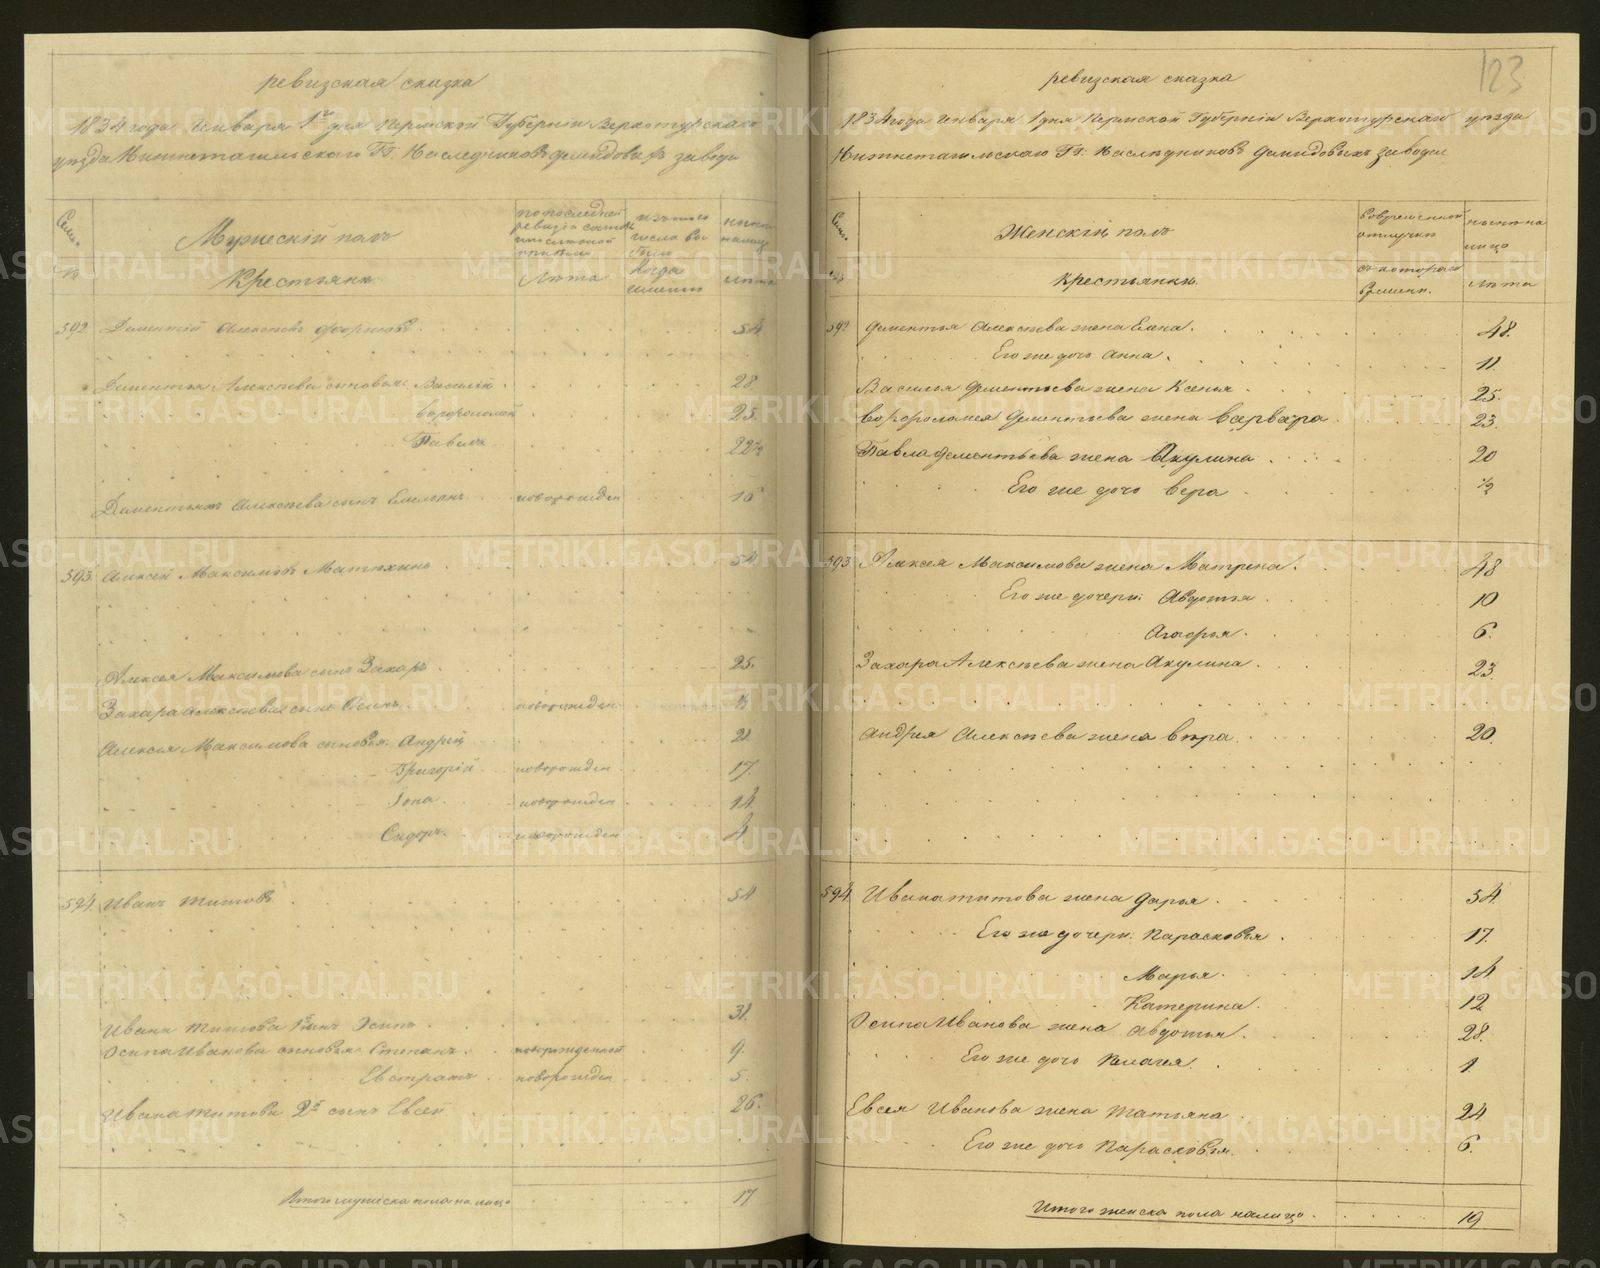 ревизская сказка
1834 года Января 1го дня Пермской Губернiи Верхотурскаго
уезда Нижнетагильскаго Гг. Наследниковъ Демидовыхъ завода
Семьи
№
Мужескiй полъ
Крестьяне
по последней ревизiи состояло
Лета
изъ того числа выбыло
Когда именно
ныне налицо
лета
592 Дементiй Алексеевъ 54
Дементья Алексеева сыновья Василiй 28
Ворфоломей 25
Павелъ 22½
Дементья Алексеева сынъ Емельянъ новорожден 16
593 Алексей Максимовъ Матюхинъ 54
Алексея Максимова сынъ Захаръ 25.
Захара Алексеева сынъ Осипъ новорожден
Алексея Максимова сыновья Андрей 21
Григорiй новорожден 17.
Iона новорожден 14
Сидоръ новорожден 4
594 Иванъ Титовъ 54
Ивана Титова 1й сынъ Осипъ 31.
Осипа Иванова сыновья Степанъ новорожденной 9.
Евстратъ новорожден 5.
Ивана Титова 2й сынъ Евсей 26.
Итого мужеска пола на лицо 17
123
ревизская сказка
1834 года Января 1 дня Пермской Губернiи Верхотурскаго уезда
Нижнетагильскаго Гг. Наследниковъ Демидовыхъ завода
Семьи
№
Женскiй полъ
Крестьянки.
Во временной отлучке
съ котораго времени.
ныне на лицо
лета
592 Дементья Алексеева жена Елена. 48.
Его же дочь Анна. 11.
Василья Дементьева жена Ксенья 25.
Ворфоломея Дементьева жена Варвара 23.
Павла Дементьева жена Акулина 20
Его же дочь Вера ½
593 Алексея Максимова жена Матрена. 48
Его же дочери: Авдотья 10
Агафья. 6.
Захара Алексеева жена Акулина. 23.
Андрея Алексеева жена Вера. 20.
594 Ивана Титова жена Дарья. 54
Его же дочери: Парасковья. 17.
Марья. 14
Катерина. 12
Осипа Иванова жена Авдотья. 28.
Его же дочь Пелагея. 1.
Евсея Иванова жена Татьяна 24
Его же дочь Парасковья. 6.
Итого женска пола налицо. 19
METRIKI.GASO-URAL.RU